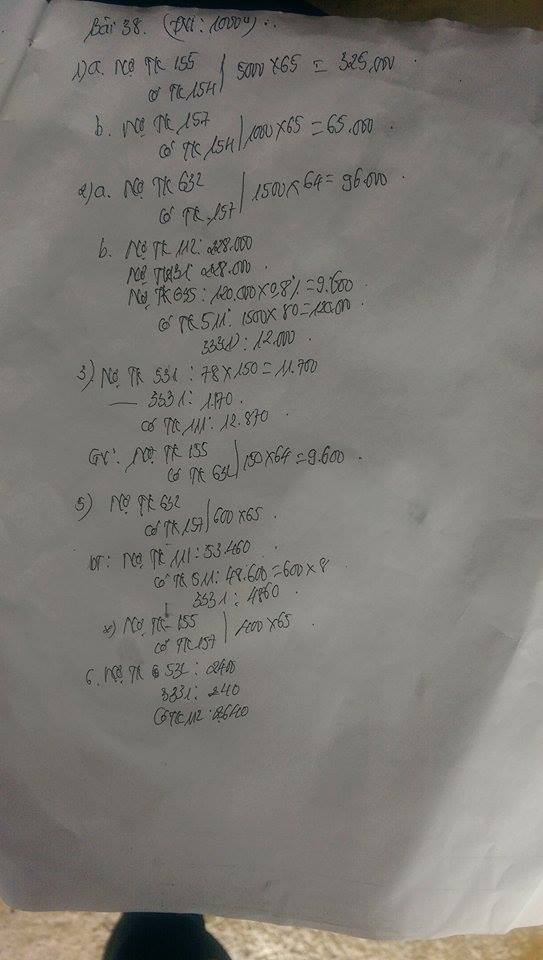 Bài 38. (ĐVT: 1000đ)
1) a. Nợ TK 155
Có TK 154 | 5000 x 65 = 325.000
b. Nợ TK 157
Có TK 154 | 1000 x 65 = 65.000
2) a. Nợ TK 632
Có TK 157 | 1500 x 64 = 96.000
b. Nợ TK 112:
Nợ TK 131:
Nợ TK 635: 120.000 x 0,8% = 9.600
Có TK 511: 1500 x 80 = 120.000
3331: 12.000
3) Nợ TK 531: 78 x 150 = 11.700
3331: 1.170
Có TK 111: 12.870
GV: Nợ TK 155
Có TK 632 | 150 x 64 = 9.600
5) Nợ TK 632
Có TK 157 | 600 x 65
DT: Nợ TK 111: 53.460
Có TK 511: 48.600 = 600 x 8
3331: 4860
Nợ TK 155
Có TK 157 | x 65
6. Nợ TK 2400
3331: 240
Có TK 112: 2640